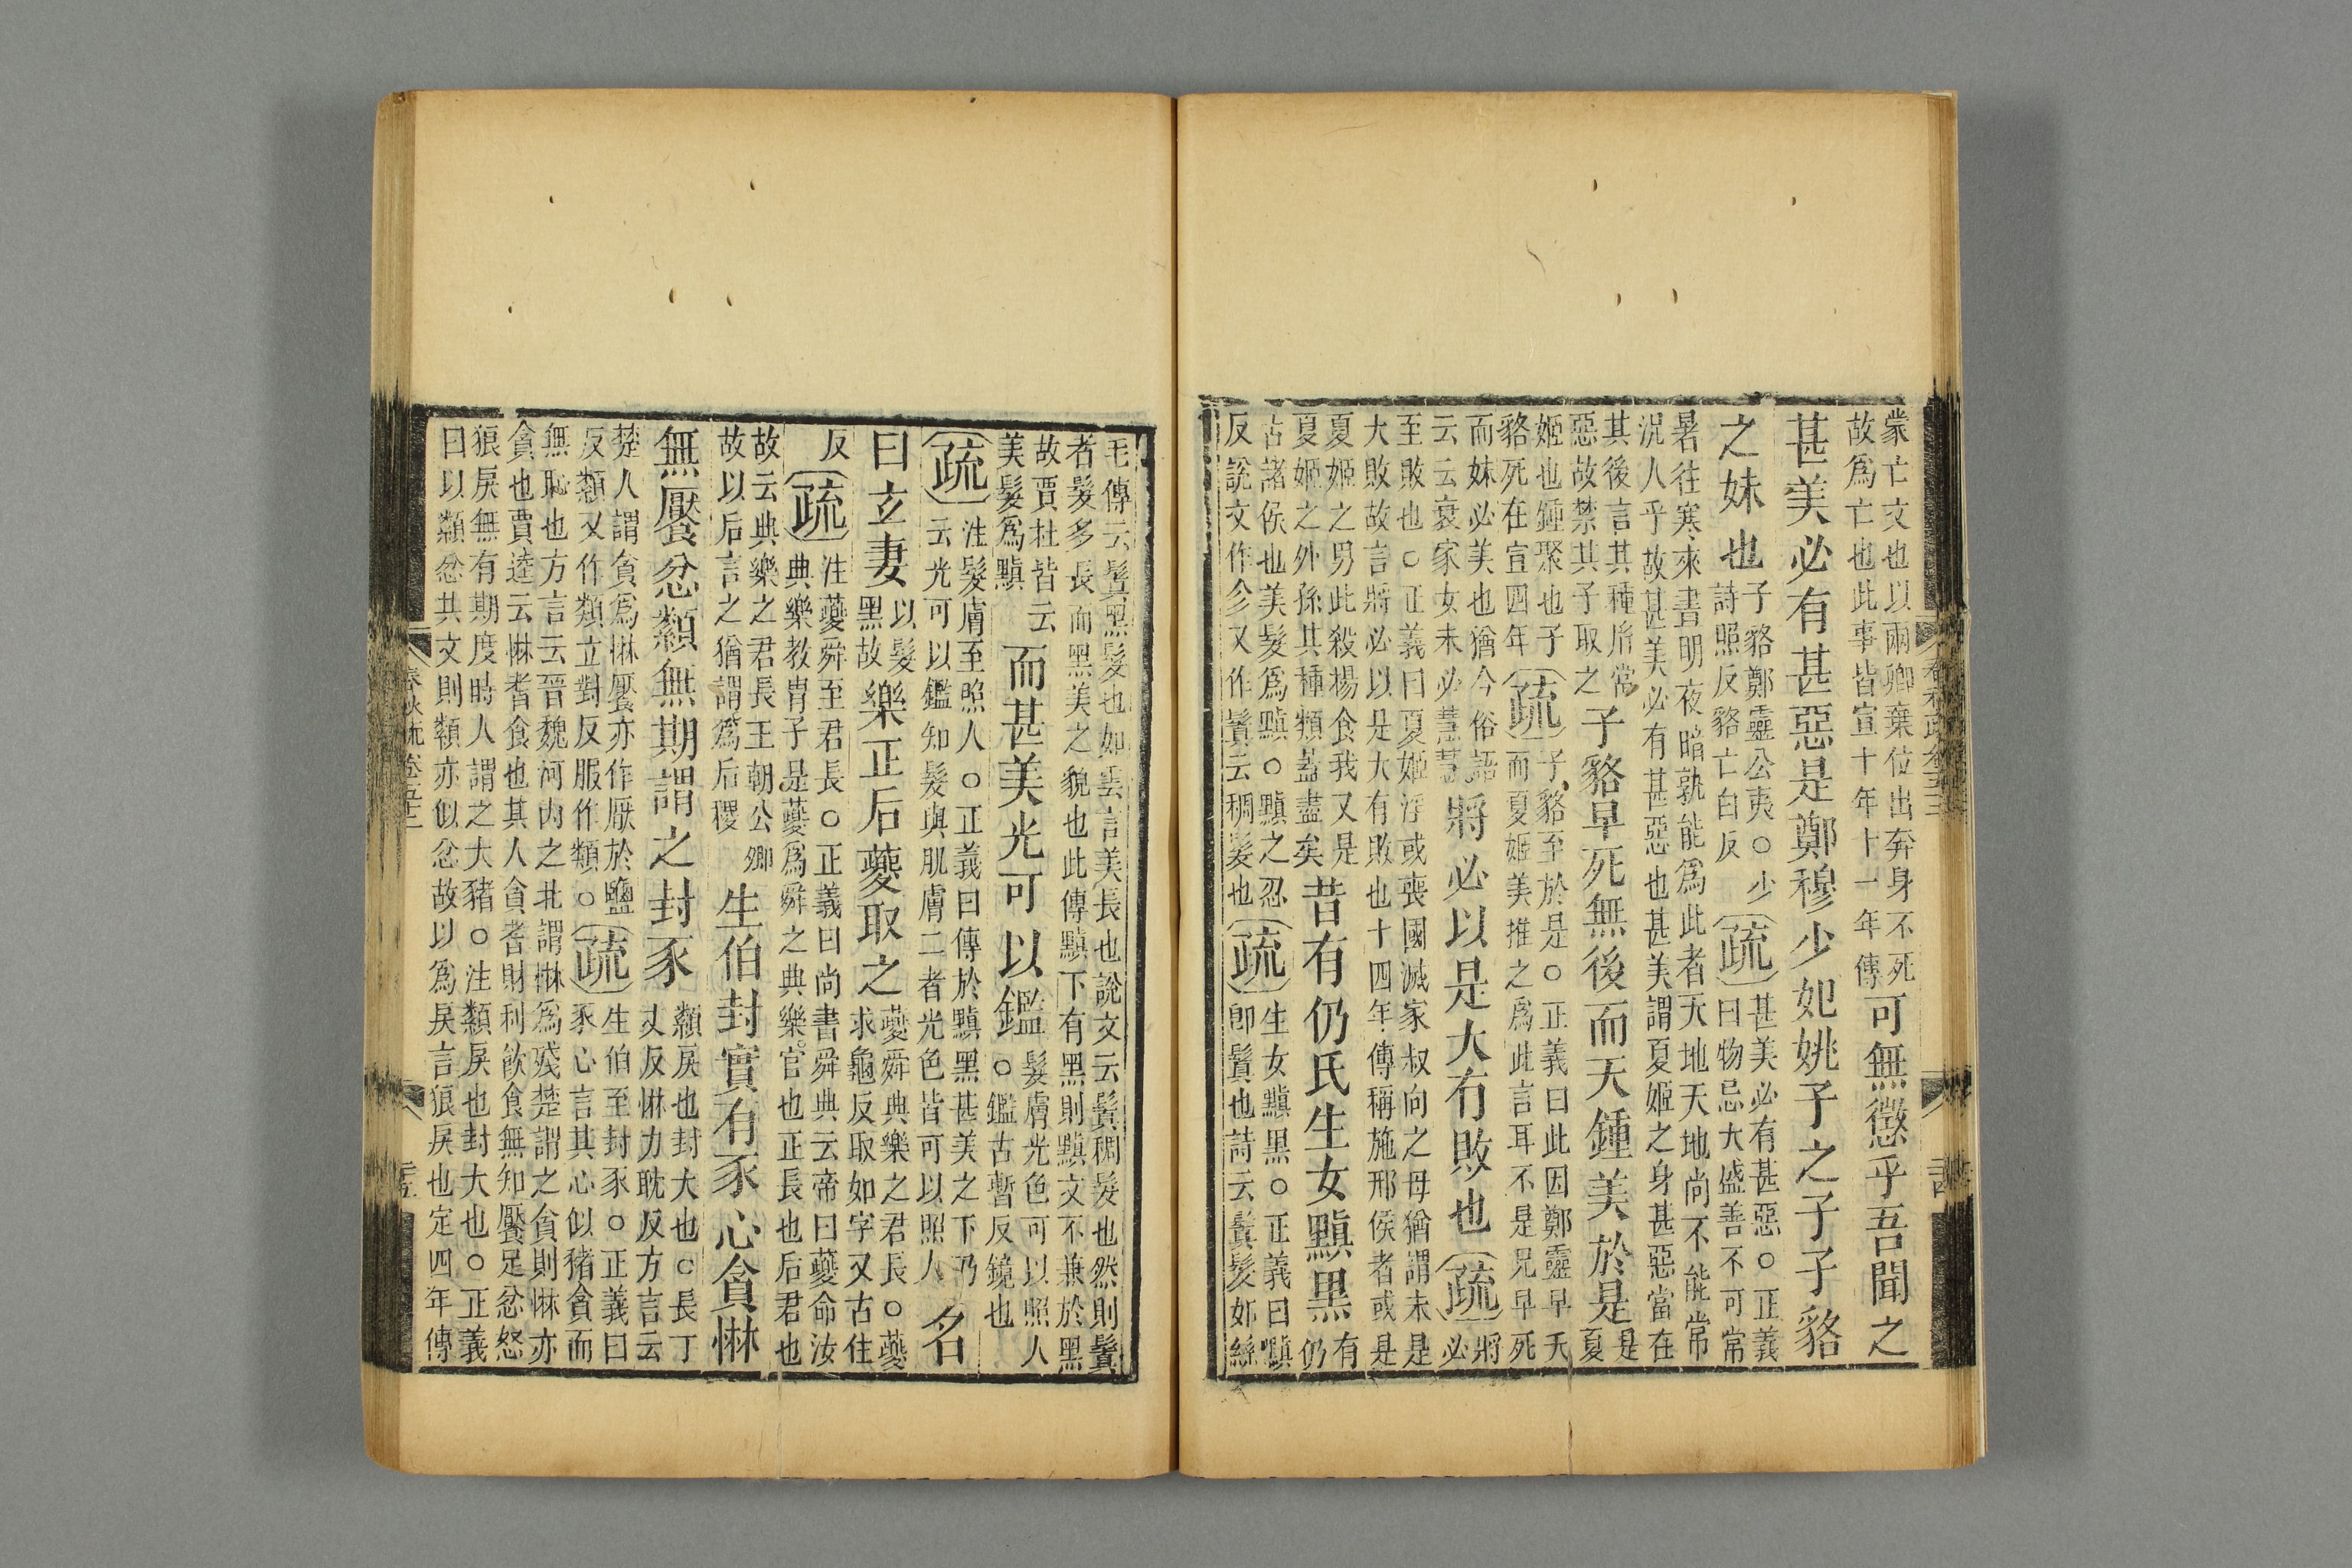 蒙亡文也以兩卿棄位出奔身不死
故爲亡也此事皆宣十年十一年傳
可無懲乎吾聞之
甚美必有甚惡是鄭穆少妃姚子之子子貉
之妹也
子貉鄭靈公夷○少
詩照反貉亡白反
疏
甚美必有甚惡○正義
曰物忌大盛善不可常
暑往寒來晝明夜暗孰能爲此者天地天地尚不能常
況人乎故甚美必有甚惡也甚美謂夏姬之身甚惡當在
其後言其種胤常
惡故禁其子取之
子貉早死無後而天鍾美於是
是
夏
姬也鍾聚也子
貉死在宣四年
疏
子貉至於是○正義曰此因鄭靈早夭
而夏姬美推之爲此言耳不是兄早死
而妹必美也猶今俗語
云云衰家女未必慧
將必以是大有敗也
疏
將
必
至敗也○正義曰夏姬淫或喪國滅家叔向之母猶謂未是
大敗故言將必以是大有敗也十四年傳稱施邢侯者或是
夏姬之男此殺楊食我又是
夏姬之外孫其種類蓋盡矣
昔有仍氏生女黰黑
有
仍
古諸侯也美髮爲黰○黰之忍
反說文作㐱又作鬒云稠髮也
疏
生女黰黑○正義曰黰
卽鬒也詩云鬒髮如絲
毛傳云鬒黑髮也如雲言美長也說文云鬒稠髮也然則鬒
者髮多長而黑美之貌也此傳黰下有黑則黰文不兼於黑
故賈杜皆云
美髮爲黰
而甚美光可以鑑
髮膚光色可以照人
○鑑古暫反鏡也
疏
注髮膚至照人○正義曰傳於黰黑甚美之下乃
云光可以鑑知髮與肌膚二者光色皆可以照人
名
曰玄妻
以髮
黑故
樂正后夔取之
夔舜典樂之君長○夔
求龜反取如字又古住
反
疏
注夔舜至君長○正義曰尚書舜典云帝曰夔命汝
典樂教胄子是夔爲舜之典樂官也正長也后君也
故云典樂之君長王朝公卿
故以后言之猶謂稷爲后稷
生伯封實有豕心貪惏
無饜忿纇無期謂之封豕
纇戾也封大也○長丁
丈反惏力耽反方言云
楚人謂貪爲惏饜亦作厭於鹽
反纇又作類立對反服作類○
疏
生伯至封豕○正義曰
豕心言其心似豬貪而
無恥也方言云晉魏河內之北謂惏爲殘楚謂之貪則惏亦
貪也賈逵云惏耆食也其人貪耆財利飲食無知饜足忿怒
狼戾無有期度時人謂之大豬○注纇戾也封大也○正義
曰以纇忿共文則纇亦似忿故以爲戾言狼戾也定四年傳